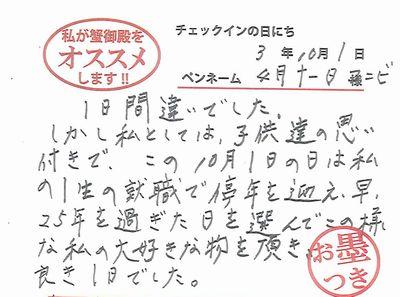 私が蟹御殿を
オススメ
します!!
チェックインの日にち
3年10月1日
ペンネーム 4月十一日 様
1日間違いでした。
しかし私としては、子供達の思い
付きで、この10月1の日は私
の1生の就職で停年を迎え、早、
25年を過ぎた日を選んでこの様
な私の大好きな物を頂き、
良き1日でした。
お墨
つき